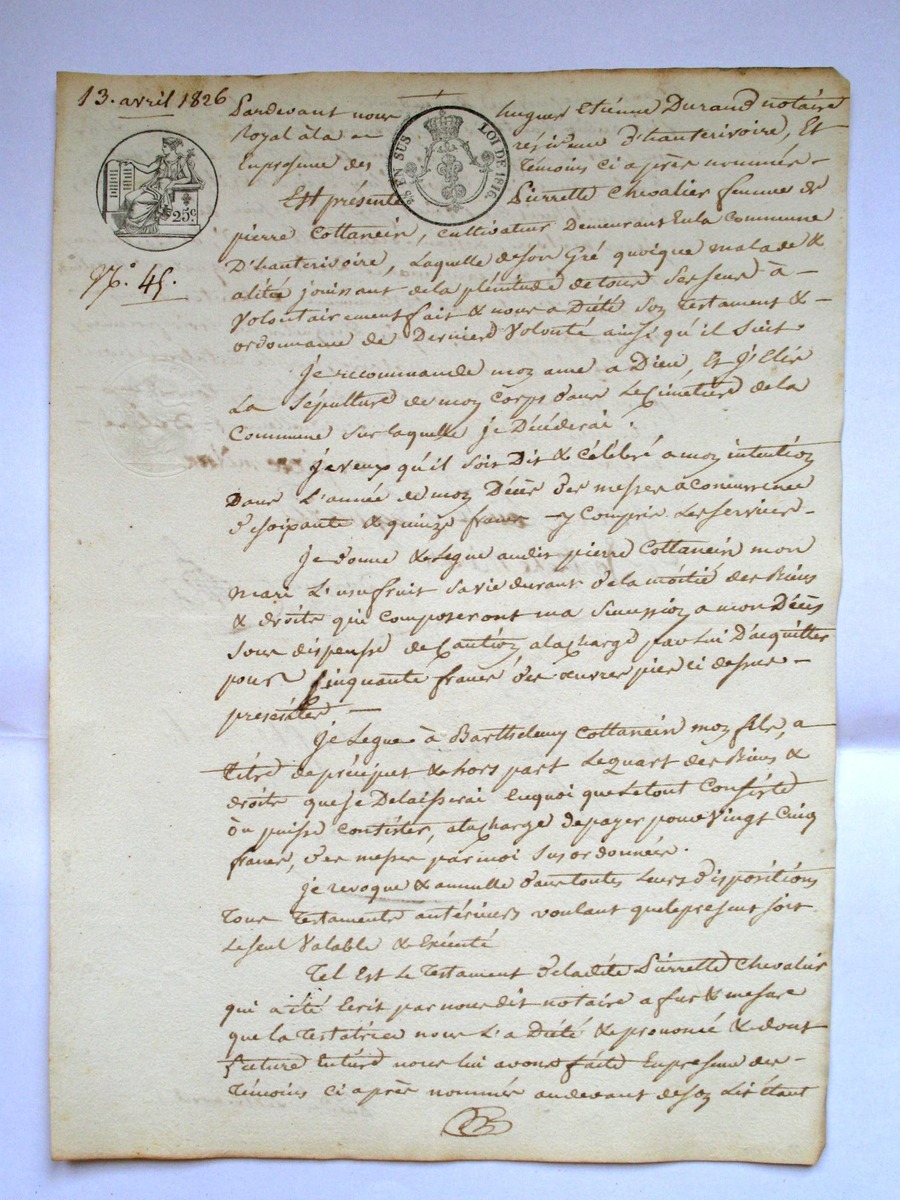 13. avril 1826
Pardevant nous hugues Etienne Durand notaire
Royal à la résidence d'hauterivoire, Et
En présence des Témoins ci après nommés -
25 EN SUS LOI DE 1816.
25c
N.° 45.
Est présente Pierrette Chevalier femme de
pierre Cottancin, cultivateur Demeurant En la Commune
D'hauterivoire, Laquelle de son Gré quoique malade &
alitée jouissant de la plénitude de tous Ses Sens à -
Volontairement fait & nous a Dicté Son testament &
ordonnance de Derniere Volonté ainsi qu'il Suit
Je recommande mon ame à Dieu, Et J'Elis
La Sépulture de mon Corps dans Le Cimetière de la
Commune Sur laquelle je Décéderai.
Je veux qu'il Soit Dit & Célébré a mon intention
Dans L'année de mon Décès des messes à Concurrence
de soixante & quinze francs y Compris Les Services -
Je donne & Legue audit pierre Cottancin mon
mari L'usufruit Sa vie durant de la moitié des Biens
& droits qui Composeront ma Succession a mon Décès
Sous dispense de Caution a la Charge par Lui D'acquitter
pour Cinquante francs des œuvres pies ci dessus -
prescrites -
Je Legue à Barthelemy Cottancin mon fils, a
titre de préciput & hors part Le quart des Biens &
droits que Je Delaisserai En quoi que Le tout Consiste
Ou puisse Consister, a la Charge de payer pour Vingt Cinq
francs, des messes par moi Sus ordonnées.
Je revoque & annulle dans toutes Leurs dispositions
Tous Testaments antérieurs voulant que le present Soit
Le Seul Valable & Exécuté
Tel Est Le Testament de ladite Pierrette Chevalier
qui a été Ecrit par nous dit notaire a fur & mesure
que la Testatrice nous L'a Dicté & prononcé & dont
Lecture Entière nous lui avons faite En présence des -
Témoins ci après nommés au devant de Son Lit étant